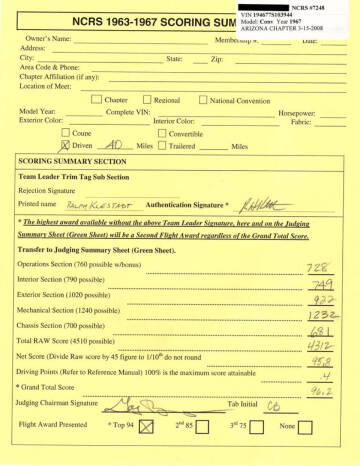 NCRS #7248
VIN 194677S103944
Model: Conv Year 1967
ARIZONA CHAPTER 3-15-2008
NCRS 1963-1967 SCORING SUM
Owner's Name: Membership #. Date:
Address:
City: State: Zip:
Area Code & Phone:
Chapter Affiliation (if any):
Location of Meet:
Chapter Regional National Convention
Model Year: Complete VIN: Horsepower:
Exterior Color: Interior Color: Fabric:
Coupe Convertible
Driven 40 Miles Trailered Miles
SCORING SUMMARY SECTION
Team Leader Trim Tag Sub Section
Rejection Signature
Printed name Authentication Signature *
* The highest award available without the above Team Leader Signature, here and on the Judging
Summary Sheet (Green Sheet) will be a Second Flight Award regardless of the Grand Total Score.
Transfer to Judging Summary Sheet (Green Sheet).
Operations Section (760 possible w/bonus) 728
Interior Section (790 possible) 749
Exterior Section (1020 possible) 922
Mechanical Section (1240 possible) 1232
Chassis Section (700 possible) 681
Total RAW Score (4510 possible) 4312
Net Score (Divide Raw score by 45 figure to 1/10th do not round 95.8
Driving Points (Refer to Reference Manual) 100% is the maximum score attainable .4
* Grand Total Score 96.2
Judging Chairman Signature Tab Initial CB
Flight Award Presented * Top 94 2nd 85 3rd 75 None